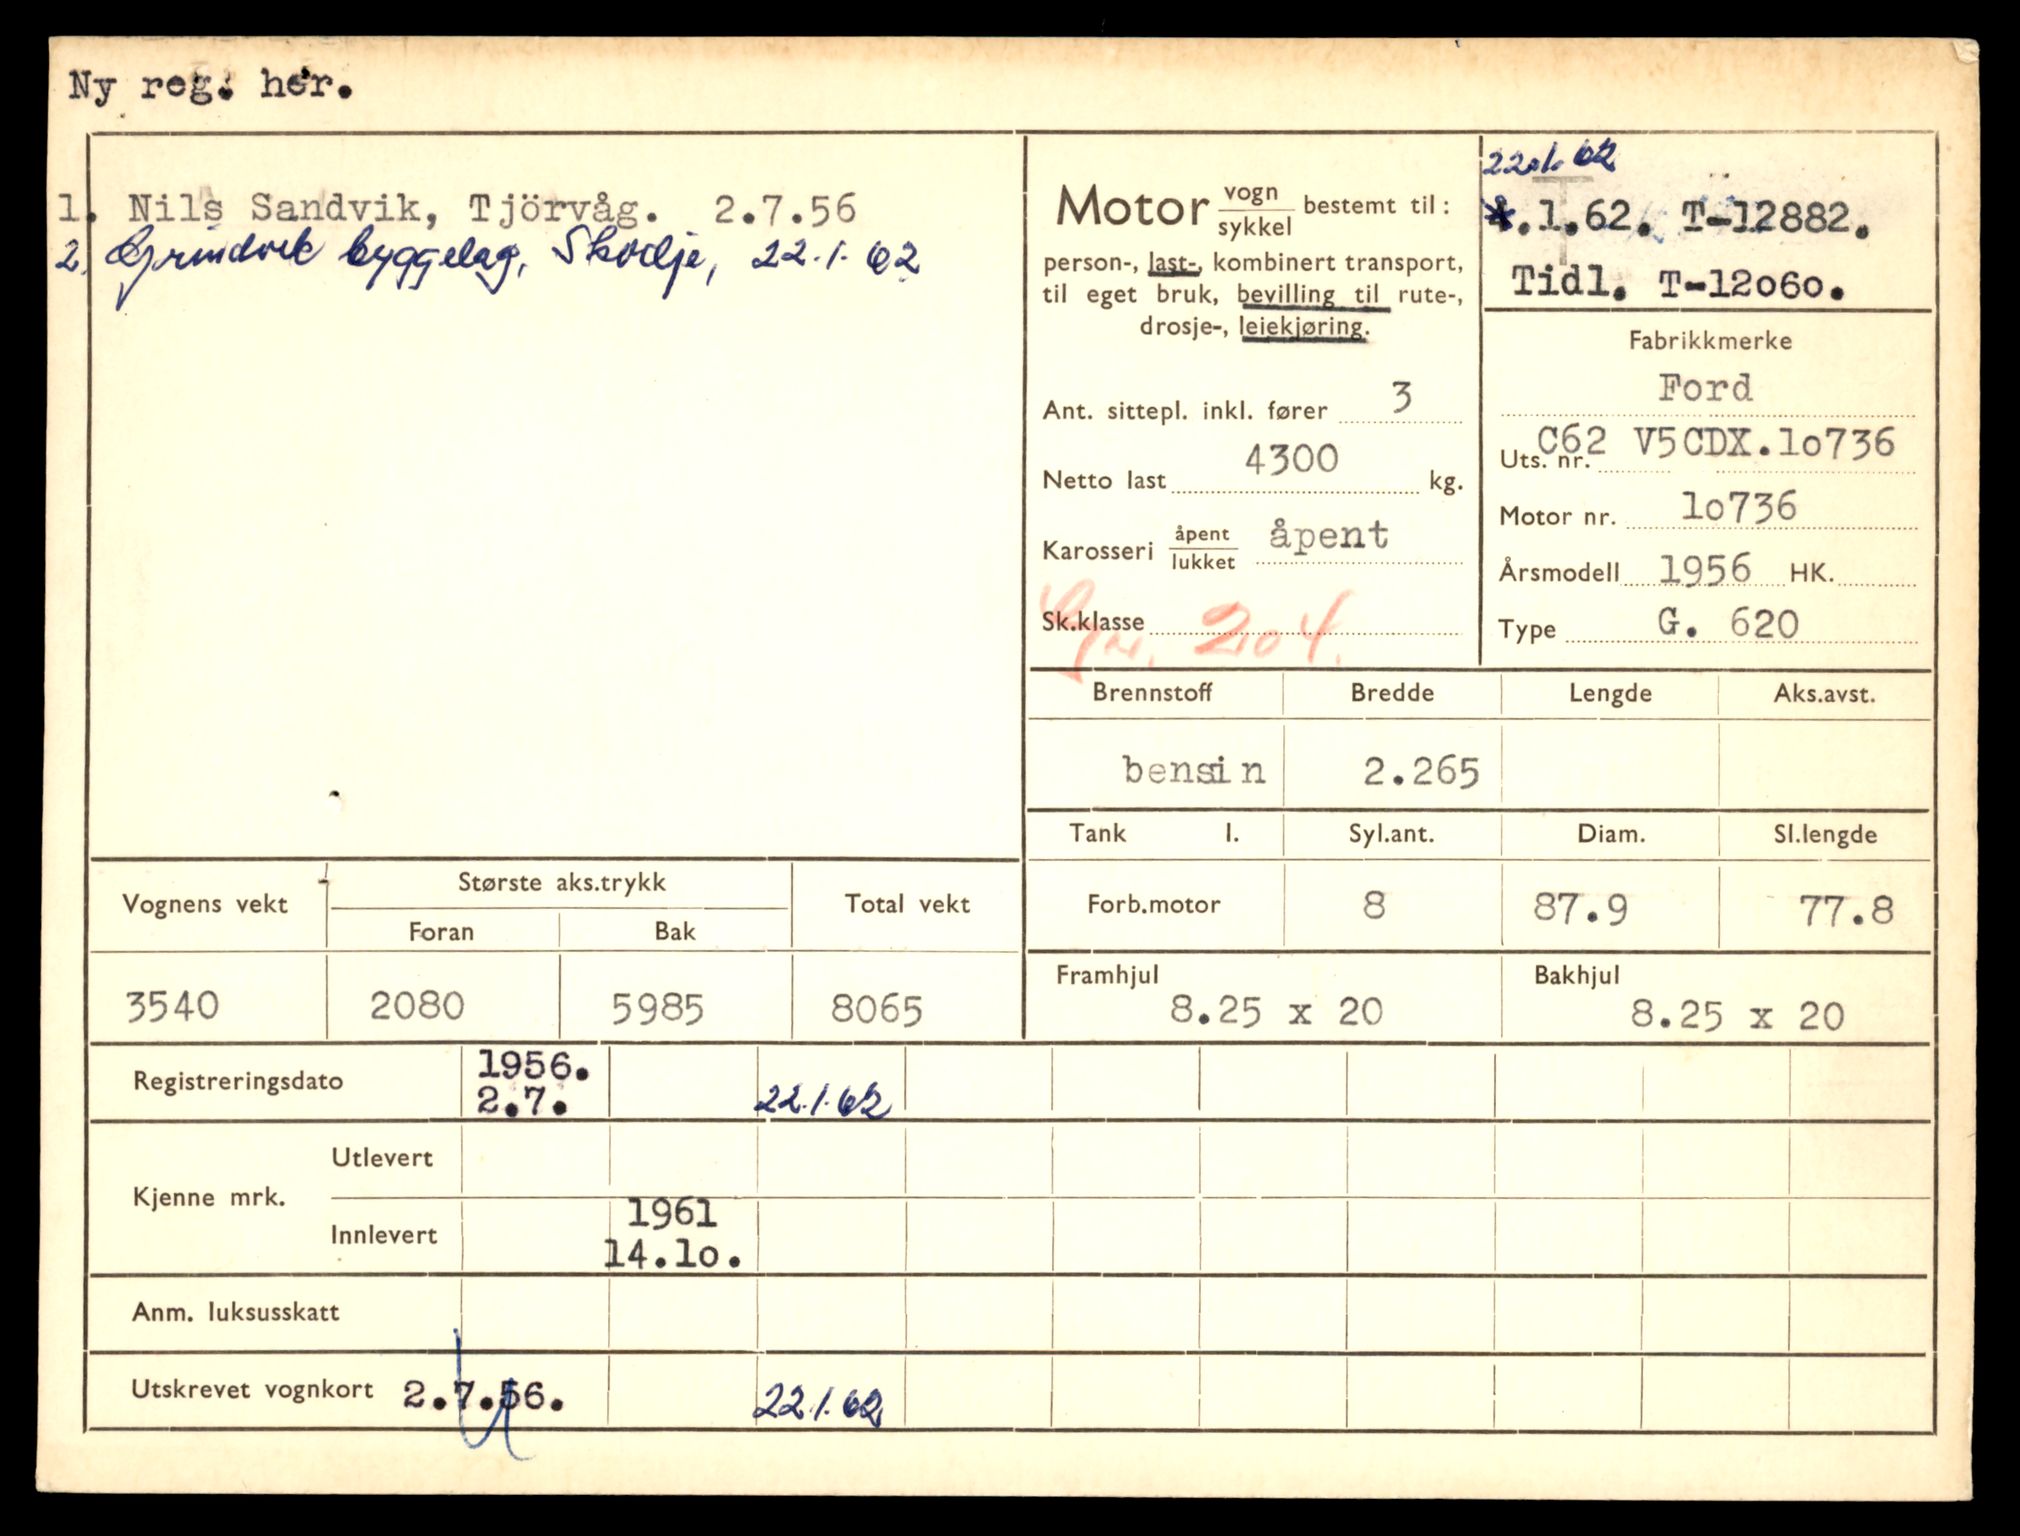 Ny reg. her.
1. Nils Sandvik, Tjörvåg. 2.7.56
2. Grindvik byggelag, Skodje, 22.1.62
Motor vogn
sykkel bestemt til:
person-, last-, kombinert transport,
til eget bruk, bevilling til rute-,
drosje-, leiekjøring.
Ant. sittepl. inkl. fører 3
Netto last 4300 kg.
Karosseri åpent
lukket åpent
Sk.klasse
Gr. 204.
22.1.62
.1.62. T-12882.
Tidl. T-12o6o.
Fabrikkmerke
Ford
Uts. nr. C62 V5CDX.lo736
Motor nr. lo736
Årsmodell 1956 HK.
Type G. 620
Brennstoff Bredde Lengde Aks.avst.
bensin 2.265
Tank l. Syl.ant. Diam. Sl.lengde
Forb.motor 8 87.9 77.8
Framhjul Bakhjul
8.25 x 20 8.25 x 20
Vognens vekt Største aks.trykk Total vekt
Foran Bak
3540 2080 5985 8065
Registreringsdato 1956.
2.7. 22.1.62
Kjenne mrk. Utlevert
Innlevert 1961
14.lo.
Anm. luksusskatt
Utskrevet vognkort 2.7.56. 22.1.62